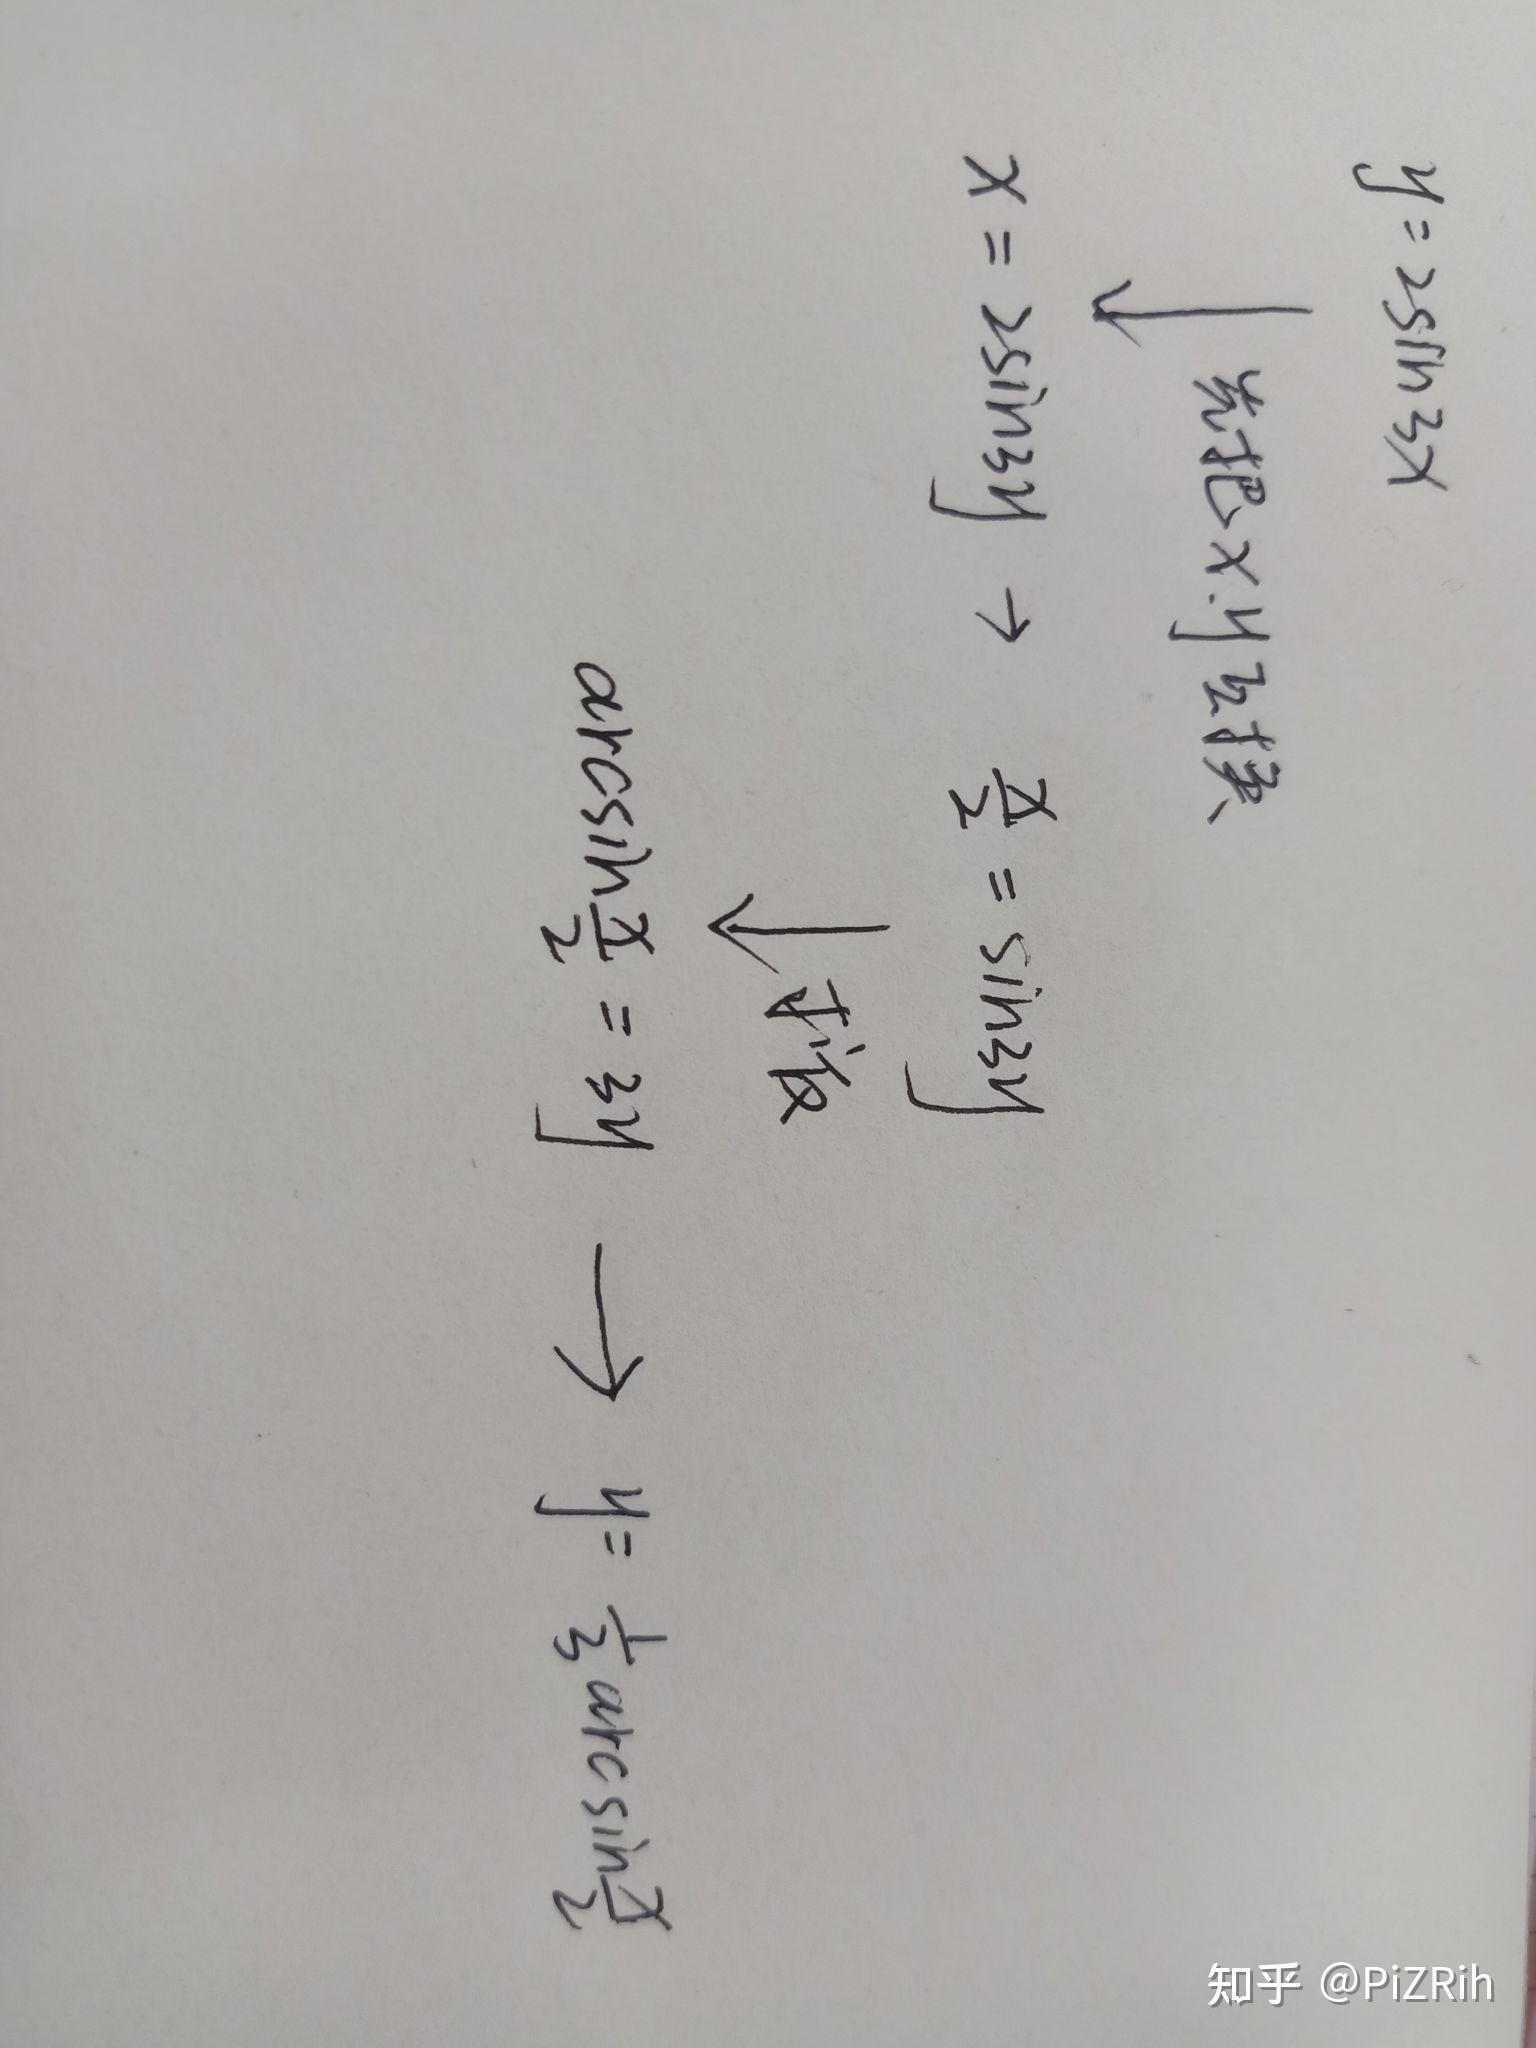 y=2sin3x
↓ 先把x.y互换
x = 2sin3y → x/2 = sin3y
↓ 求反
arcsin x/2 = 3y → y= 1/3 arcsin x/2
知乎 @PiZRih